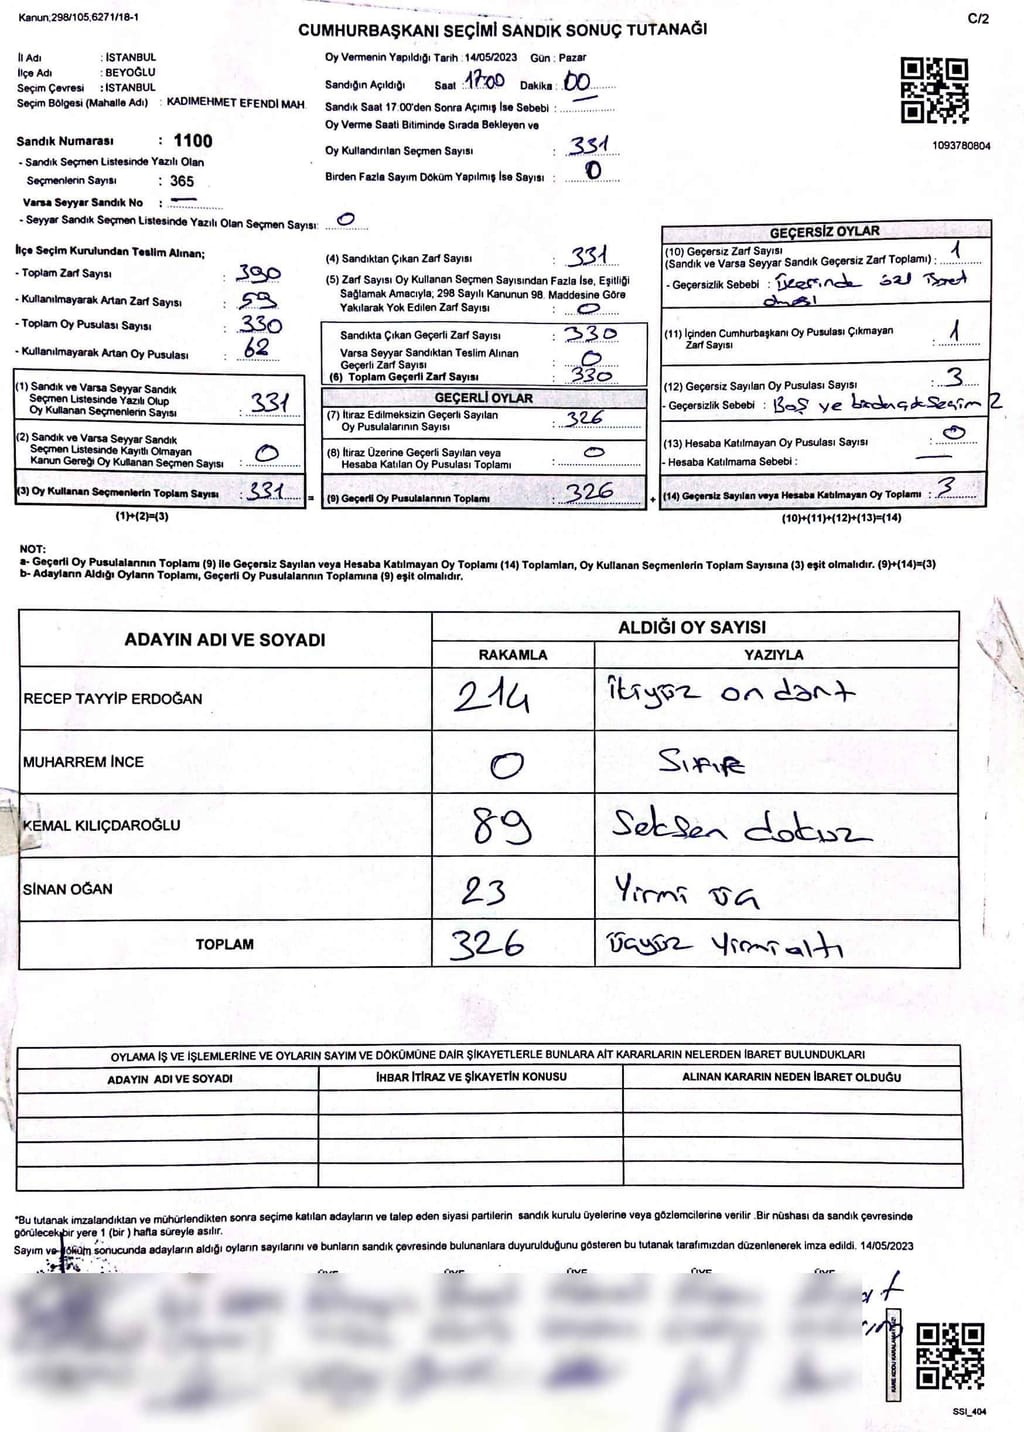 Kanun,298/105,6271/18-1
C/2
CUMHURBAŞKANI SEÇİMİ SANDIK SONUÇ TUTANAĞI
İl Adı : İSTANBUL
İlçe Adı : BEYOĞLU
Seçim Çevresi : İSTANBUL
Seçim Bölgesi (Mahalle Adı) : KADIMEHMET EFENDİ MAH.
Sandık Numarası : 1100
- Sandık Seçmen Listesinde Yazılı Olan
Seçmenlerin Sayısı : 365
Varsa Seyyar Sandık No : —
- Seyyar Sandık Seçmen Listesinde Yazılı Olan Seçmen Sayısı: 0
Oy Vermenin Yapıldığı Tarih : 14/05/2023 Gün : Pazar
Sandığın Açıldığı Saat : 17:00 Dakika : 00
Sandık Saat 17.00'den Sonra Açımış İse Sebebi :
Oy Verme Saati Bitiminde Sırada Bekleyen ve
Oy Kullandırılan Seçmen Sayısı : 331
Birden Fazla Sayım Döküm Yapılmış İse Sayısı : 0
1093780804
İlçe Seçim Kurulundan Teslim Alınan;
- Toplam Zarf Sayısı : 390
- Kullanılmayarak Artan Zarf Sayısı : 59
- Toplam Oy Pusulası Sayısı : 330
- Kullanılmayarak Artan Oy Pusulası : 62
(1) Sandık ve Varsa Seyyar Sandık
Seçmen Listesinde Yazılı Olup
Oy Kullanan Seçmenlerin Sayısı : 331
(2) Sandık ve Varsa Seyyar Sandık
Seçmen Listesinde Kayıtlı Olmayan
Kanun Gereği Oy Kullanan Seçmen Sayısı : 0
(3) Oy Kullanan Seçmenlerin Toplam Sayısı : 331 =
(1)+(2)=(3)
(4) Sandıktan Çıkan Zarf Sayısı : 331
(5) Zarf Sayısı Oy Kullanan Seçmen Sayısından Fazla İse, Eşitliği
Sağlamak Amacıyla; 298 Sayılı Kanunun 98. Maddesine Göre
Yakılarak Yok Edilen Zarf Sayısı : 0
Sandıkta Çıkan Geçerli Zarf Sayısı : 330
Varsa Seyyar Sandıktan Teslim Alınan
Geçerli Zarf Sayısı : 0
(6) Toplam Geçerli Zarf Sayısı : 330
GEÇERLİ OYLAR
(7) İtiraz Edilmeksizin Geçerli Sayılan
Oy Pusulalarının Sayısı : 326
(8) İtiraz Üzerine Geçerli Sayılan veya
Hesaba Katılan Oy Pusulası Toplamı : 0
(9) Geçerli Oy Pusulalarının Toplamı : 326 +
GEÇERSİZ OYLAR
(10) Geçersiz Zarf Sayısı
(Sandık ve Varsa Seyyar Sandık Geçersiz Zarf Toplamı) : 1
- Geçersizlik Sebebi : Üzerinde özel işaret
olması
(11) İçinden Cumhurbaşkanı Oy Pusulası Çıkmayan
Zarf Sayısı : 1
(12) Geçersiz Sayılan Oy Pusulası Sayısı : 3
- Geçersizlik Sebebi : Boş ve birden çok Seçim 2
(13) Hesaba Katılmayan Oy Pusulası Sayısı : 0
- Hesaba Katılmama Sebebi : —
(14) Geçersiz Sayılan veya Hesaba Katılmayan Oy Toplamı : 3
(10)+(11)+(12)+(13)=(14)
NOT:
a- Geçerli Oy Pusulalarının Toplamı (9) ile Geçersiz Sayılan veya Hesaba Katılmayan Oy Toplamı (14) Toplamları, Oy Kullanan Seçmenlerin Toplam Sayısına (3) eşit olmalıdır. (9)+(14)=(3)
b- Adayların Aldığı Oyların Toplamı, Geçerli Oy Pusulalarının Toplamına (9) eşit olmalıdır.
ADAYIN ADI VE SOYADI
ALDIĞI OY SAYISI
RAKAMLA YAZIYLA
RECEP TAYYİP ERDOĞAN 214 ikiyüz on dört
MUHARREM İNCE 0 Sıfır
KEMAL KILIÇDAROĞLU 89 Seksen dokuz
SİNAN OĞAN 23 Yirmi üç
TOPLAM 326 üçyüz yirmi altı
OYLAMA İŞ VE İŞLEMLERİNE VE OYLARIN SAYIM VE DÖKÜMÜNE DAİR ŞİKAYETLERLE BUNLARA AİT KARARLARIN NELERDEN İBARET BULUNDUKLARI
ADAYIN ADI VE SOYADI İHBAR İTİRAZ VE ŞİKAYETİN KONUSU ALINAN KARARIN NEDEN İBARET OLDUĞU
*Bu tutanak imzalandıktan ve mühürlendikten sonra seçime katılan adayların ve talep eden siyasi partilerin sandık kurulu üyelerine veya gözlemcilerine verilir .Bir nüshası da sandık çevresinde
görülecek bir yere 1 (bir ) hafta süreyle asılır.
Sayım ve döküm sonucunda adayların aldığı oyların sayılarını ve bunların sandık çevresinde bulunanlara duyurulduğunu gösteren bu tutanak tarafımızdan düzenlenerek imza edildi. 14/05/2023
ÜYE ÜYE ÜYE ÜYE ÜYE
SSI_404